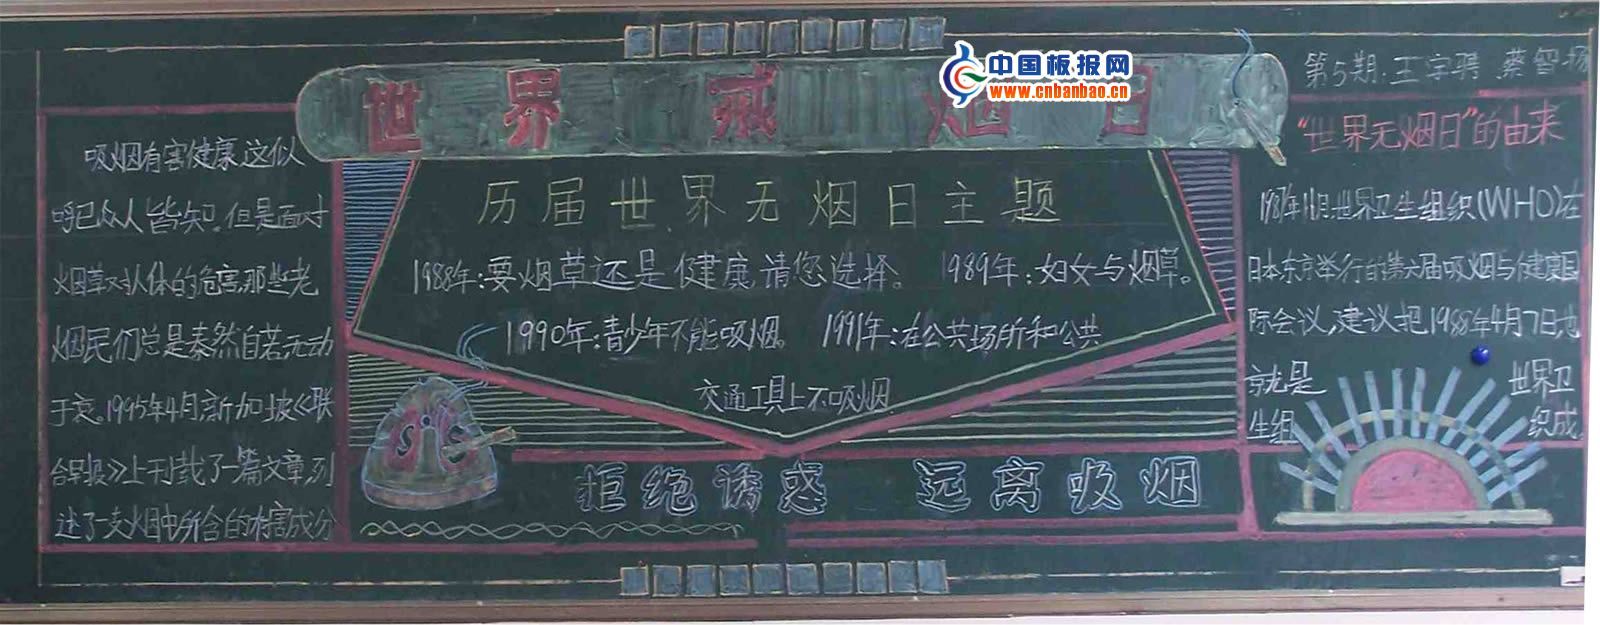 中国板报网
www.cnbanbao.cn
世界戒烟日
第5期.王字骋 蔡智扬
吸烟有害健康,这似
呼已众人皆知。但是面对
烟草对人体的危害,那些老
烟民们总是泰然自若,无动
于衷。1995年4月,新加坡《联
合早报》上刊载了一篇文章,列
述了一支火因中所含的有害成分
历届世界无烟日主题
1988年:要烟草还是健康,请您选择。 1989年:妇女与烟草。
1990年:青少年不能吸烟。 1991年:在公共场所和公共
交通工具上不吸烟.
拒绝诱惑 远离吸烟
“世界无烟日”的由来
1987年11月,世界卫生组织(WHO)在
日本东京举行的第六届吸烟与健康国
际会议,建议把1988年4月7日,也
就是 世界卫
生组 织成